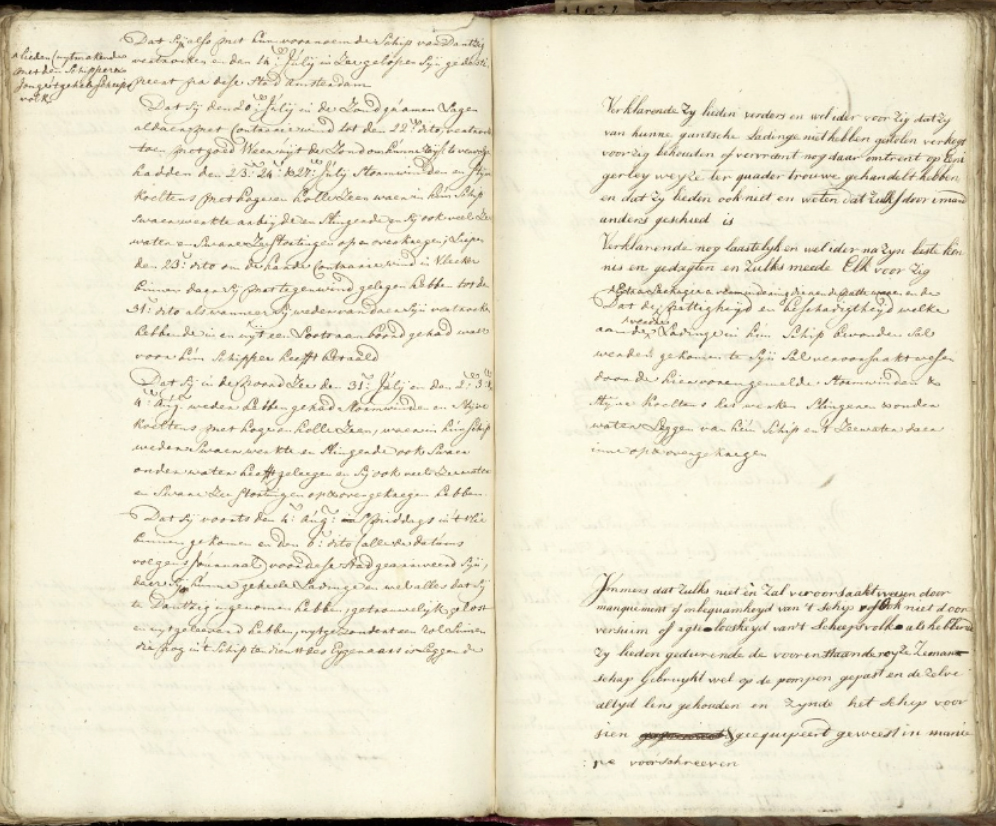 Dat Sij also met hun voornoemde Schip van Dantzig
vertrocken en den 14.e Julij in Zee gelopen Sijn gedestineert
na dese Stad Amsterdam
lieden (uytmakende
met den Schipper
Scheeps
volk
Dat Sij den 20.e Julij in de Zond quamen Lagen
aldaer met Contrarie wind tot den 22.e dito, wanneer
toen met goed Weer uijt de Zond
hadden den 23: 24: & 27: Julij Stormwinden en Stijve
Koeltens met hogen holle Zeen waer in hun Schip
Swaer werkte arbeijde en Slingerde en Sij ook veel Zee
water en Sware Zee Stortingen op en over kregen; Liepen
den 23: dito om de harde Contrarie wind in Vlecker
binnen daer Sij met tegenwind gelegen hebben tot den
31: dito als wanneer Sij weder van daer Sijn vertrocken
hebbende in en uyt een Loots aan boord gehad welke
voor hun Schipper heefft betaeld
Dat Sij in de Noord Zee den 31: Julij en den 2: 3: &
4: Aug: weder hebben gehad Stormwinden en Stijve
Koeltens met hogen holle Zeen, waer in hun Schip
weder Swaer werkte en Slingerde ook Swaer
onder water heefft gelegen en Sij ook veele Zeewater
en Sware Zee Stortingen op & over gekregen hebben
Dat Sij voorts den 4: Aug: Smiddags in 't Vlie
binnen gekomen en den 6: dito (alle de datums
volgens Journaal) voor dese Stad gearriveerd Sijn,
daer Sij hunne geheele Ladinge en wel alles dat Sij
te Dantzig ingenomen hebben, getrouwelijk gelost
en uytgeleeverd hebben, uytgesondert een rol Linnen
die nog in 't Schip ten dienst des Eygenaers is Leggende
Verklarende Zy lieden verders en wel ider voor Zig dat Zy
van hunne gantsche Ladinge niet hebben gestolen verkogt
voor Zig behouden of verruamt nog daar omtrent op Eeni
gerley weyze ter quader trouwe gehandelt hebben
en dat Zy lieden ook niet en weten dat Zulks door imand
anders geschied is
Verklarende nog laastelyk en wel ider na Zyn beste ken
nis en gedagten en Zulks meede Elk voor Zig
Dat de nattigheyd en beschadigtheyd welke
aan de verdere Ladinge in hun Schip bevonden Sal
werden gekomen te Sijn Sal veroorsaekt wesen
door de hier voren gemelde Stormwinden &
Stijve Koeltens het werken Slingeren & onder
water Leggen van hun Schip en 't Zeewater daer
inne op & over gekregen
Immers dat Zulks niet en Zal veroorsaakt weesen door
manquement of onbequaamheyd van 't Schip of ook niet door
versuim of agteloosheyd van 't Scheeps volk als hebbende
Zy lieden gedurende de voorenstaande reyze Zeman
schap Gebruykt wel op de pompen gepast en de Zelve
altyd lens gehouden en Zynde het Schip voor
sien geequipeert geweest in manie
re voorschreeven